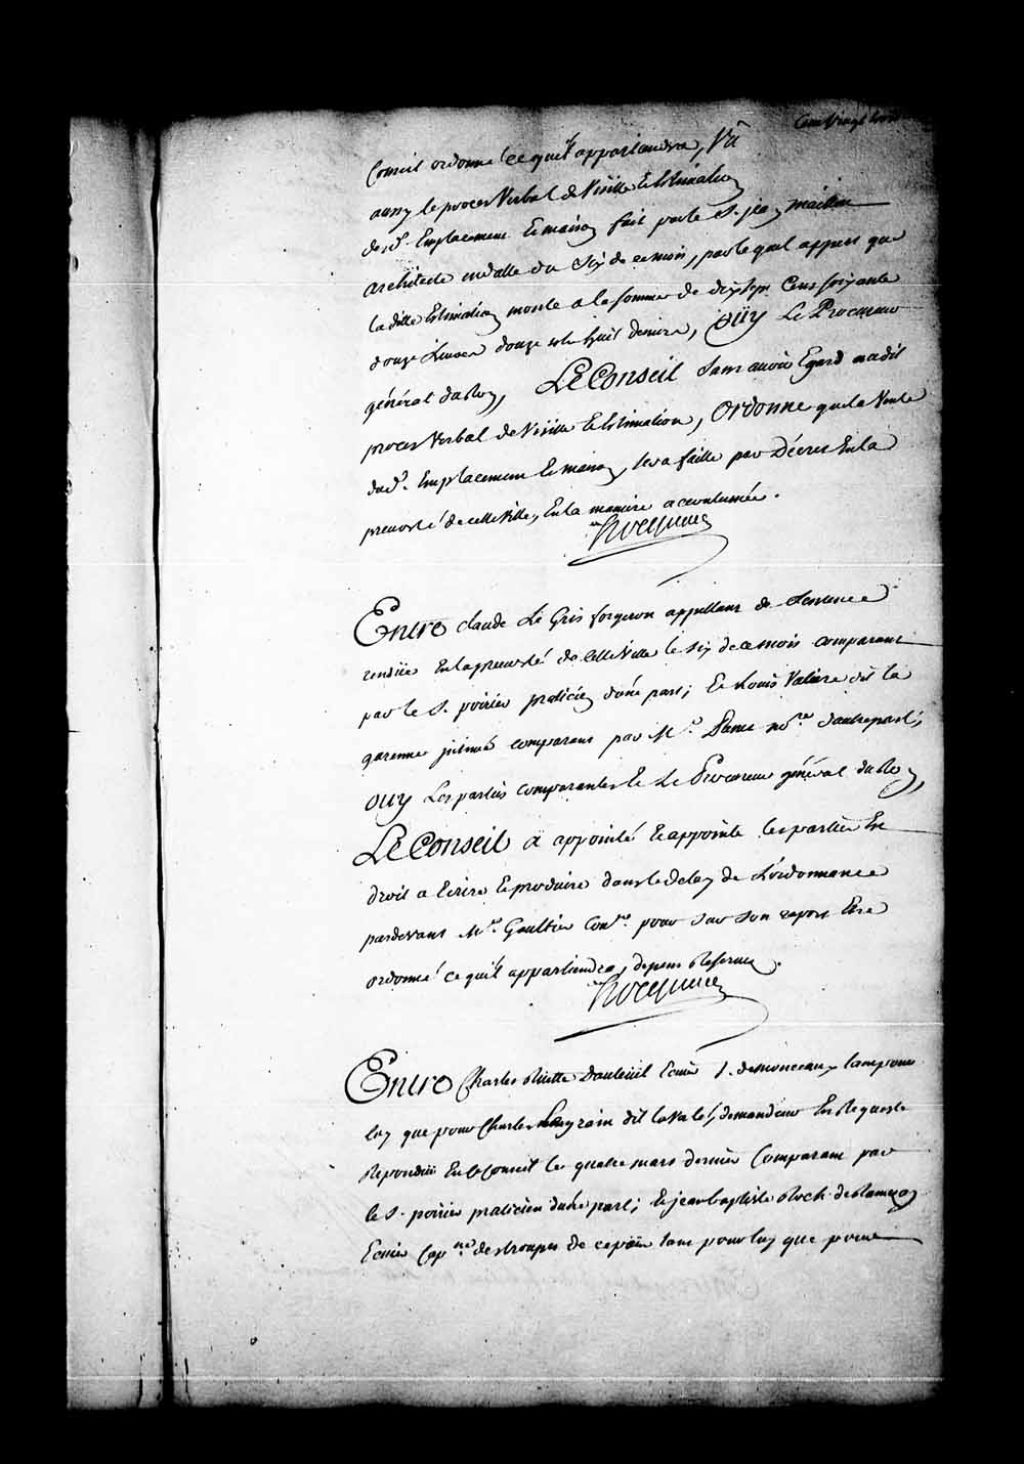 Cent vingt trois
Conseil ordonné ce qu'il appartiendra, Vû
aussy le procés Verbal de Visitte Et Estimation
desd. Emplacement Et maison fait par le Sr. jean maillou
architecte en datte du Six de ce mois, par lequel appert que
la ditte Estimation monte a la somme de dix sept Cens soixante
douze Livres douze sols huit deniers, Oüy Le Procureur
général du Roy, LE Conseil sans avoir Egard audit
procés Verbal de Visitte Et Estimation, Ordonne que la Vente
dud. Emplacement Et maison, sera faitte par Décret En la
prevosté de cette Ville, En la maniere accoutumée.
Hocquart
Entre Claude Le Gris forgeron appellant de Sentence
rendüe En la prevosté de cette Ville le six de ce mois comparant
par le Sr. poirier praticien d'une part; Et Louis Valiere dit la
garenne intimé comparant par Me. Barbel nore. d'autre part;
Ouy Les parties comparantes Et Le Procureur général du Roy,
LE Conseil a appointé Et appointe les parties En
droit a Ecrire Et produire dans le delay de L'ordonnance
pardevant Mre. Gaultier Coner. pour sur son raport Etre
ordonné ce qu'il appartiendra, depens Reservez.
Hocquart
Entre Charles Ruette Dauteüil Ecuier S. de monceaux tant pour
luy que pour Charles Legrain dit lavalé, demandeur En Requeste
Repondüe En ce Conseil le quatre mars dernier Comparant par
le Sr. poirier praticien d'une part; Et jean baptiste Roch de Ramezay
Ecuier Capne. des troupes de ce païs tant pour luy que pour